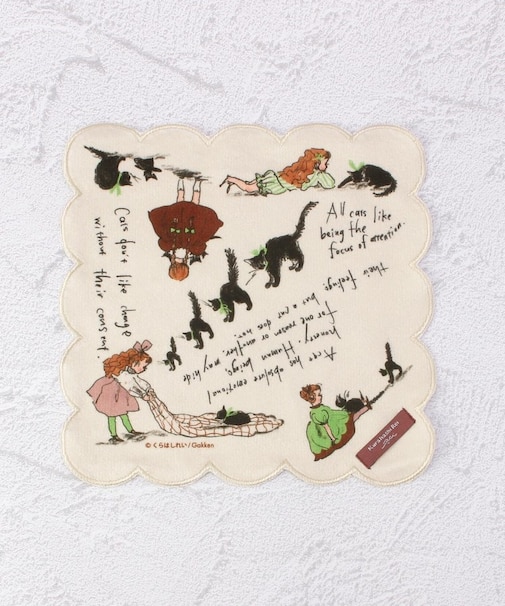 All cats like
being the
focus of attention.
Cats don't like change
without their consent.
A cat has absolute emotional
honesty. Human beings, may hide
for one reason or another,
but a cat does not.
their feelings
© くらはしれい/Gakken